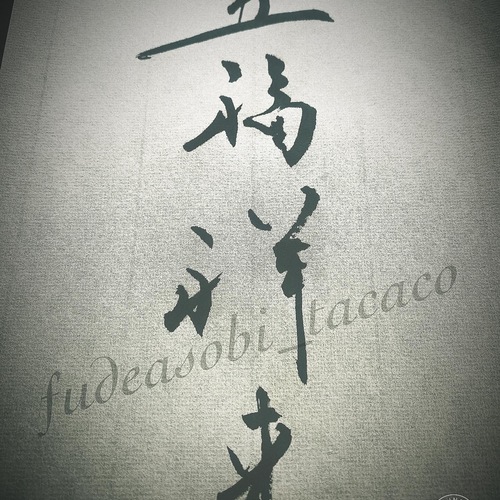 五福祥来
fudeasobi_tacaco